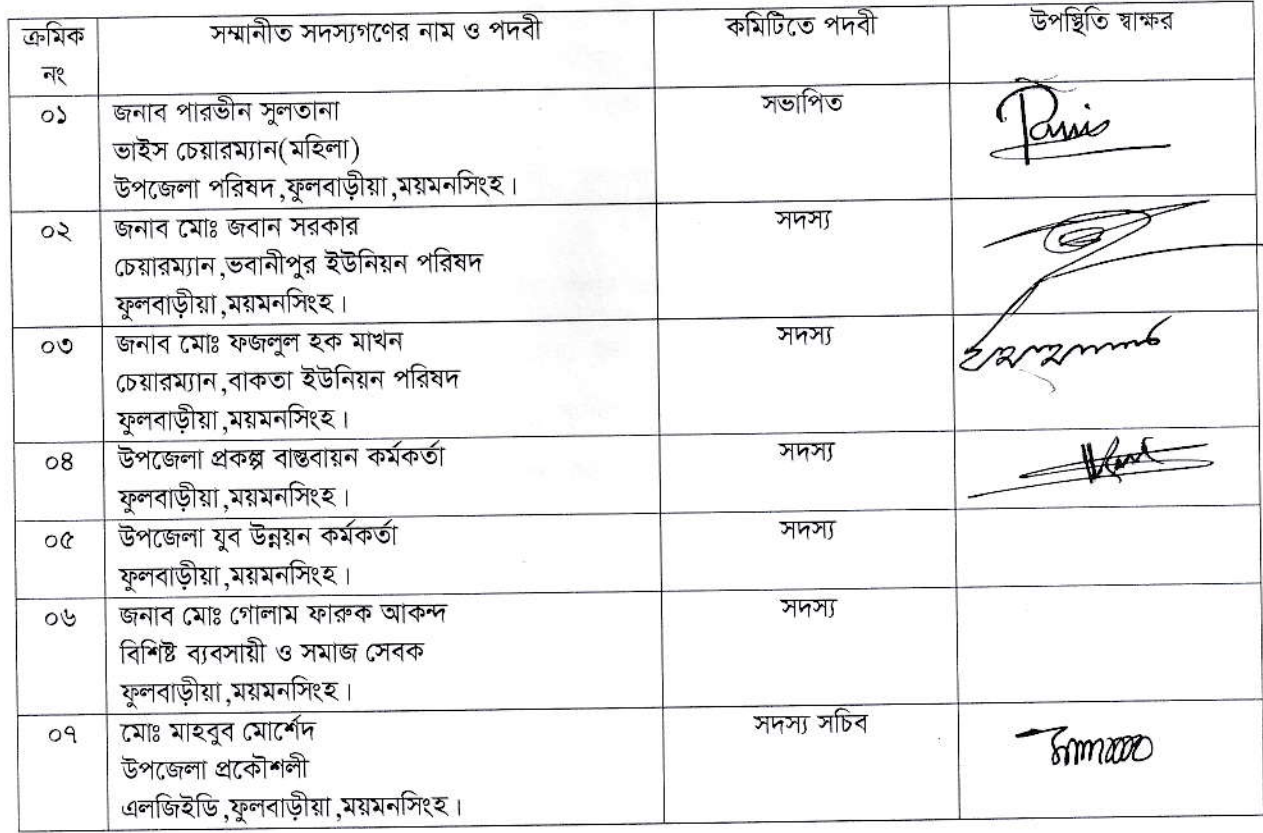 ক্রমিক নং	সম্মানীত সদস্যগণের নাম ও পদবী	কমিটিতে পদবী	উপস্থিতি স্বাক্ষর
০১	জনাব পারভীন সুলতানা	সভাপিত
ভাইস চেয়ারম্যান(মহিলা)
উপজেলা পরিষদ,ফুলবাড়ীয়া,ময়মনসিংহ।
০২	জনাব মোঃ জবান সরকার	সদস্য
চেয়ারম্যান,ভবানীপুর ইউনিয়ন পরিষদ
ফুলবাড়ীয়া,ময়মনসিংহ।
০৩	জনাব মোঃ ফজলুল হক মাখন	সদস্য
চেয়ারম্যান,বাকতা ইউনিয়ন পরিষদ
ফুলবাড়ীয়া,ময়মনসিংহ।
০৪	উপজেলা প্রকল্প বাস্তবায়ন কর্মকর্তা	সদস্য
ফুলবাড়ীয়া,ময়মনসিংহ।
০৫	উপজেলা যুব উন্নয়ন কর্মকর্তা	সদস্য
ফুলবাড়ীয়া,ময়মনসিংহ।
০৬	জনাব মোঃ গোলাম ফারুক আকন্দ	সদস্য
বিশিষ্ট ব্যবসায়ী ও সমাজ সেবক
ফুলবাড়ীয়া,ময়মনসিংহ।
০৭	মোঃ মাহবুব মোর্শেদ	সদস্য সচিব
উপজেলা প্রকৌশলী
এলজিইডি,ফুলবাড়ীয়া,ময়মনসিংহ।